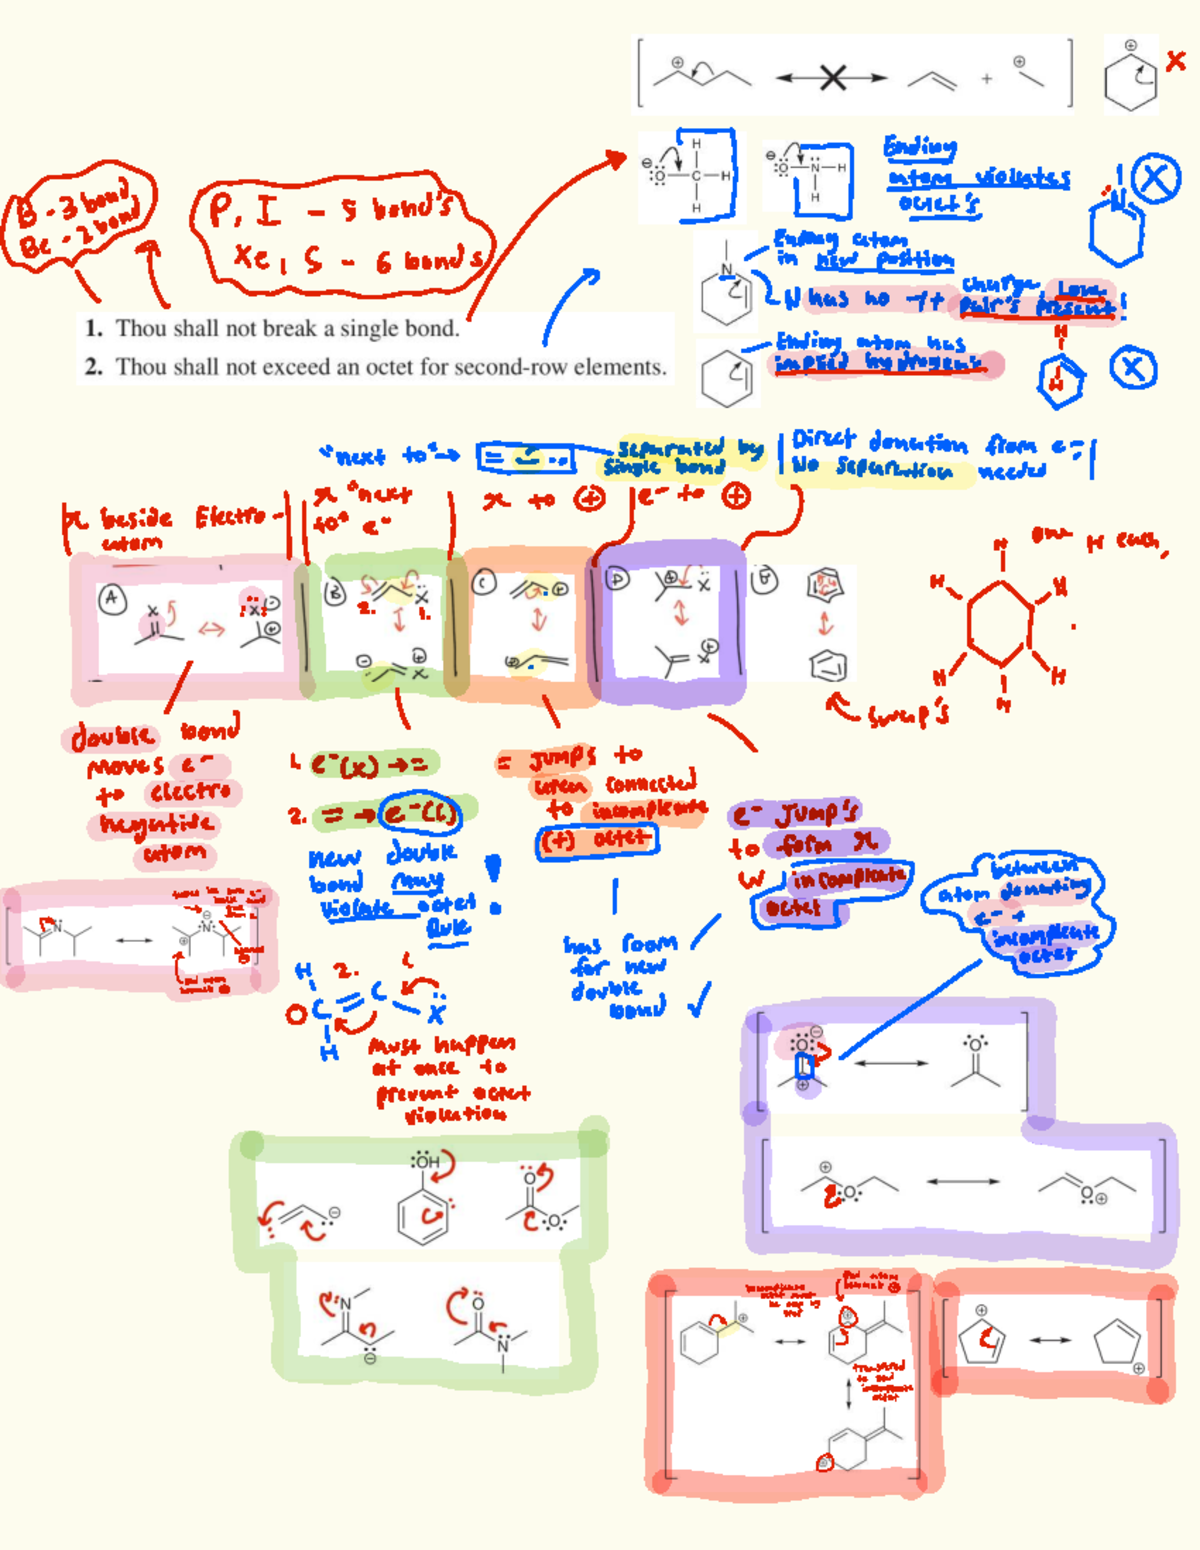 X
Ending
atom violates
octet's
B - 3 bond,
Be - 2 bond
P, I - 5 bond's
Xe, S - 6 bonds
Ending atom
in new position
N has no -/+ charge, Lone
Pair's present!
1. Thou shall not break a single bond.
2. Thou shall not exceed an octet for second-row elements.
Ending atom has
implied hydrogens
"next to" →
separated by
single bond
Direct donation from e-
No separation needed
π beside Electro -
atom
π "next
to" e-
π to ⊕
e- to ⊕
one H each,
A
B
C
D
swap's
double bond
moves e-
to electro
negative
atom
1. e-(x) → =
2. = → e-(C)
new double
bond may
violate octet
Rule
!
= jumps to
when connected
to incompleate
(+) octet
has room
for new
double
bond ✓
e- Jump's
to form π
w incompleate
octet
between
atom donating
e- +
incompleate
octet
H 2. 1.
C = C - X
H
must happen
at once to
prevent octet
violation
:ÖH
transfered
to 2nd
incompleate
octet